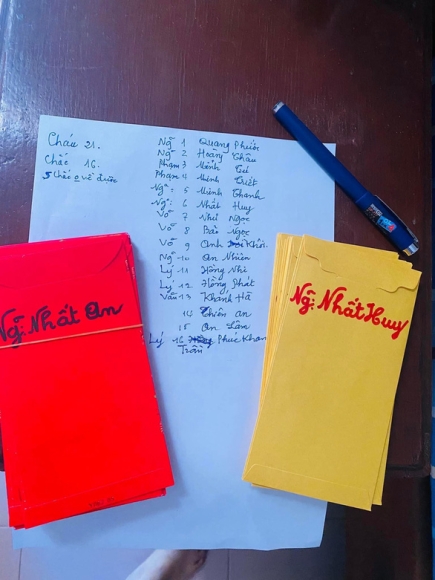 Cháu 21.
Chắc 16.
5 chắc o về được
Ng̃ 1 Quang Phước
Ng̃ 2 Hoàng Châu
Phạm 3 Minh Tú
Phạm 4 Minh Triết
Ng̃: 5 Minh Thanh
Ng̃: 6 Nhất Huy
Võ 7 Như Ngọc
Võ 8 Bảo Ngọc
Võ 9 Anh Khôi.
Ng̃ 10 An Nhiên
Lý 11 Hồng Nhi
Lý 12 Hồng Phát
Văn 13 Khánh Hà
14 Thiên An
15 An Lâm
Lý 16 Phúc Khan
Trần
Ng̃: Nhất An
Ng̃: Nhất Huy